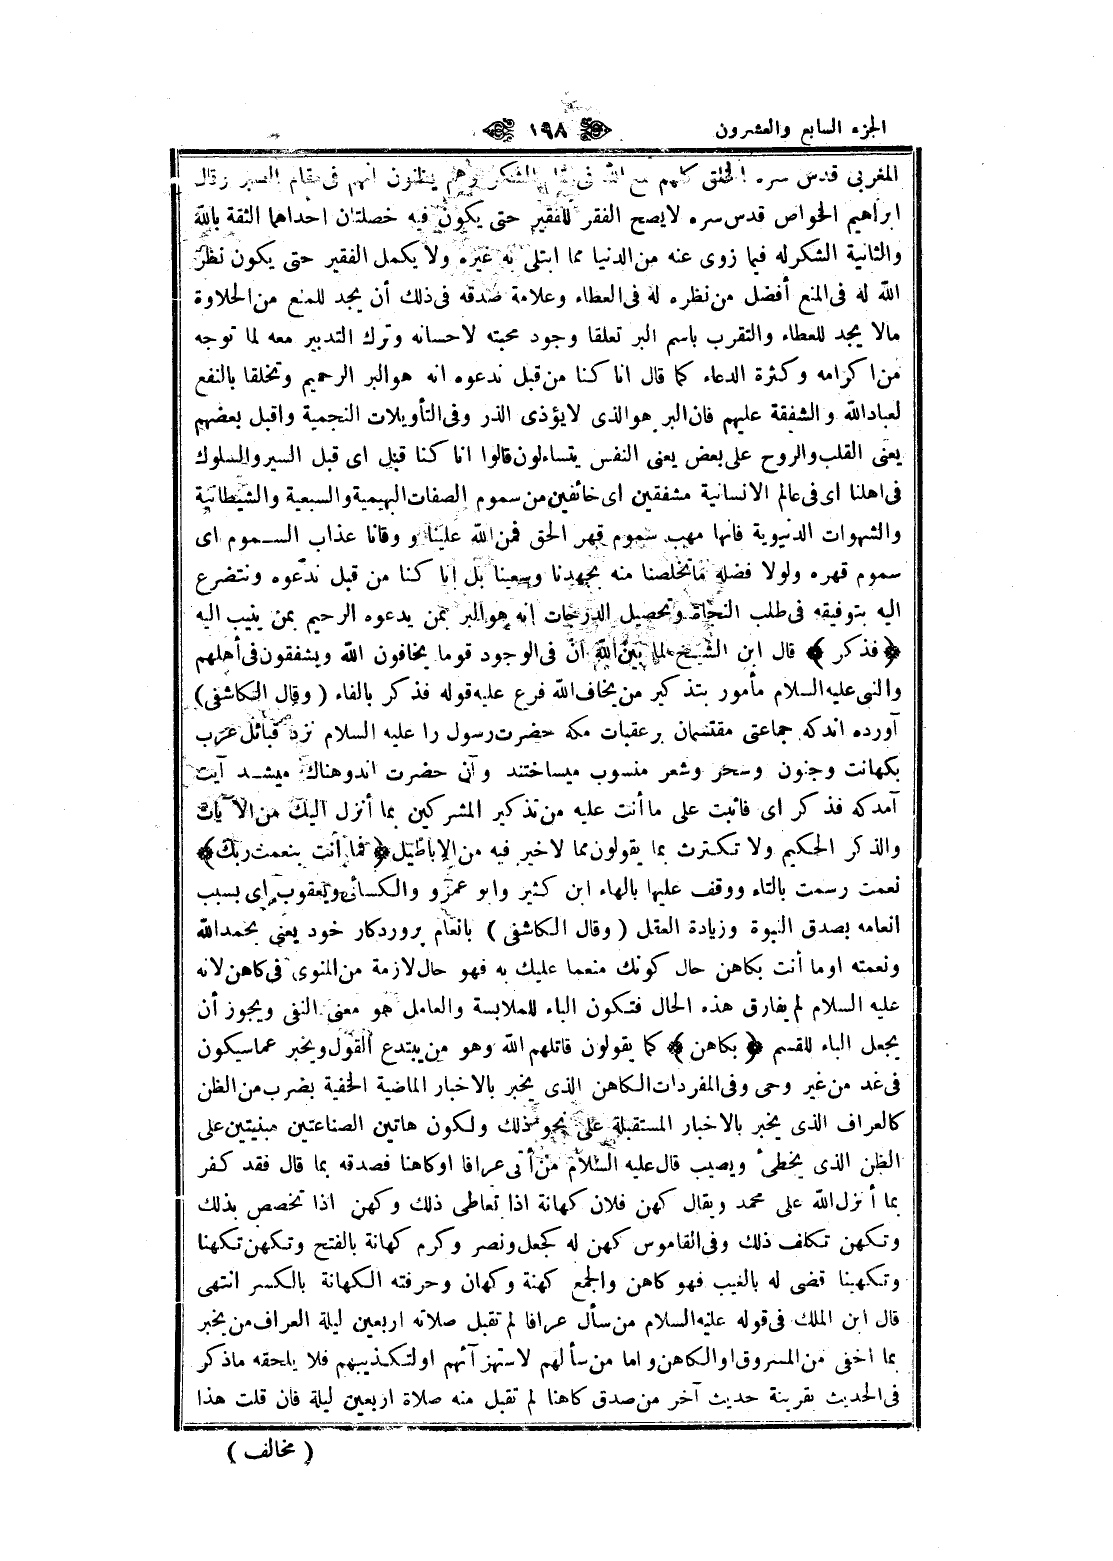 الجزء السابع والعشرون
١٩٨
المغربى قدس سره الخلق كلهم مع الله فى مقام الشكر وهم يظنون انهم فى مقام الصبر وقال
ابراهيم الخواص قدس سره لايصح الفقر للفقير حتى يكون فيه خصلتان احداهما الثقة بالله
والثانية الشكر له فيما زوى عنه من الدنيا مما ابتلى به غيره ولا يكمل الفقير حتى يكون نظر
الله له فى المنع أفضل من نظره له فى العطاء وعلامة صدقه فى ذلك أن يجد للمنع من الحلاوة
مالا يجد للعطاء والتقرب باسم البر تعلقا وجود محبته لاحسانه وترك التدبير معه لما توجه
من اكرامه وكثرة الدعاء كما قال انا كنا من قبل ندعوه انه هو البر الرحيم وتخلقا بالنفع
لعباد الله والشفقة عليهم فان البر هو الذى لايؤذى الذر وفى التأويلات النجمية واقبل بعضهم
يعنى القلب والروح على بعض يعنى النفس يتساءلون قالوا انا كنا قبل اى قبل السير والسلوك
فى اهلنا اى فى عالم الانسانية مشفقين اى خائفين من سموم الصفات البهيمية والسبعية والشيطانية
والشهوات الدنيوية فانها مهب سموم قهر الحق فمن الله علينا و وقانا عذاب السموم اى
سموم قهره ولولا فضله ماتخلصنا منه بجهدنا وسعينا بل انا كنا من قبل ندعوه ونتضرع
اليه بتوفيقه فى طلب النجاة وتحصيل الدرجات انه هو البر بمن يدعوه الرحيم بمن ينيب اليه
﴿ فذكر ﴾ قال ابن الشيخ لما بين الله ان فى الوجود قوما يخافون الله ويشفقون فى أهلهم
والنبى عليه السلام مأمور بتذكير من يخاف الله فرع عليه قوله فذكر بالفاء ( وقال الكاشفى )
آورده اند كه جماعتى مقتسمان بر عقبات مكه حضرت رسول را عليه السلام نزد قبائل عرب
بكهانت وجنون وسحر وشعر منسوب ميساختند وآن حضرت اندوهناك ميشد آيت
آمد كه فذكر اى فاثبت على ماأنت عليه من تذكير المشركين بما أنزل اليك من الآيات
والذكر الحكيم ولا تكترث بما يقولون مما لاخير فيه من الاباطيل ﴿ فما أنت بنعمت ربك ﴾
نعمت رسمت بالتاء ووقف عليها بالهاء ابن كثير وابو عمرو والكسائى ويعقوب اى بسبب
انعامه بصدق النبوة وزيادة العقل ( وقال الكاشفى ) بانعام پروردكار خود يعنى بحمد الله
ونعمته اوما أنت بكاهن حال كونك منعما عليك به فهو حال لازمة من المنوى فى كاهن لانه
عليه السلام لم يفارق هذه الحال فتكون الباء للملابسة والعامل هو معنى النفى ويجوز أن
يجعل الباء للقسم ﴿ بكاهن ﴾ كما يقولون قاتلهم الله وهو من يبتدع القول ويخبر عما سيكون
فى غد من غير وحى وفى المفردات الكاهن الذى يخبر بالاخبار الماضية الخفية بضرب من الظن
كالعراف الذى يخبر بالاخبار المستقبلة على نحو ذلك ولكون هاتين الصناعتين مبنيتين على
الظن الذى يخطئ ويصيب قال عليه السلام من أتى عرافا اوكاهنا فصدقه بما قال فقد كفر
بما أنزل الله على محمد ويقال كهن فلان كهانة اذا تعاطى ذلك وكهن اذا تخصص بذلك
وتكهن تكلف ذلك وفى القاموس كهن له كجعل ونصر وكرم كهانة بالفتح وتكهن تكهنا
وتكهينا قضى له بالغيب فهو كاهن والجمع كهنة وكهان وحرفته الكهانة بالكسر انتهى
قال ابن الملك فى قوله عليه السلام من سأل عرافا لم تقبل صلاته اربعين ليلة العراف من يخبر
بما اخفى من المسروق او الكاهن واما من سألهم لاستهزآئهم اولتكذيبهم فلا يلحقه ماذكر
فى الحديث بقرينة حديث آخر من صدق كاهنا لم تقبل منه صلاة اربعين ليلة فان قلت هذا
( مخالف )